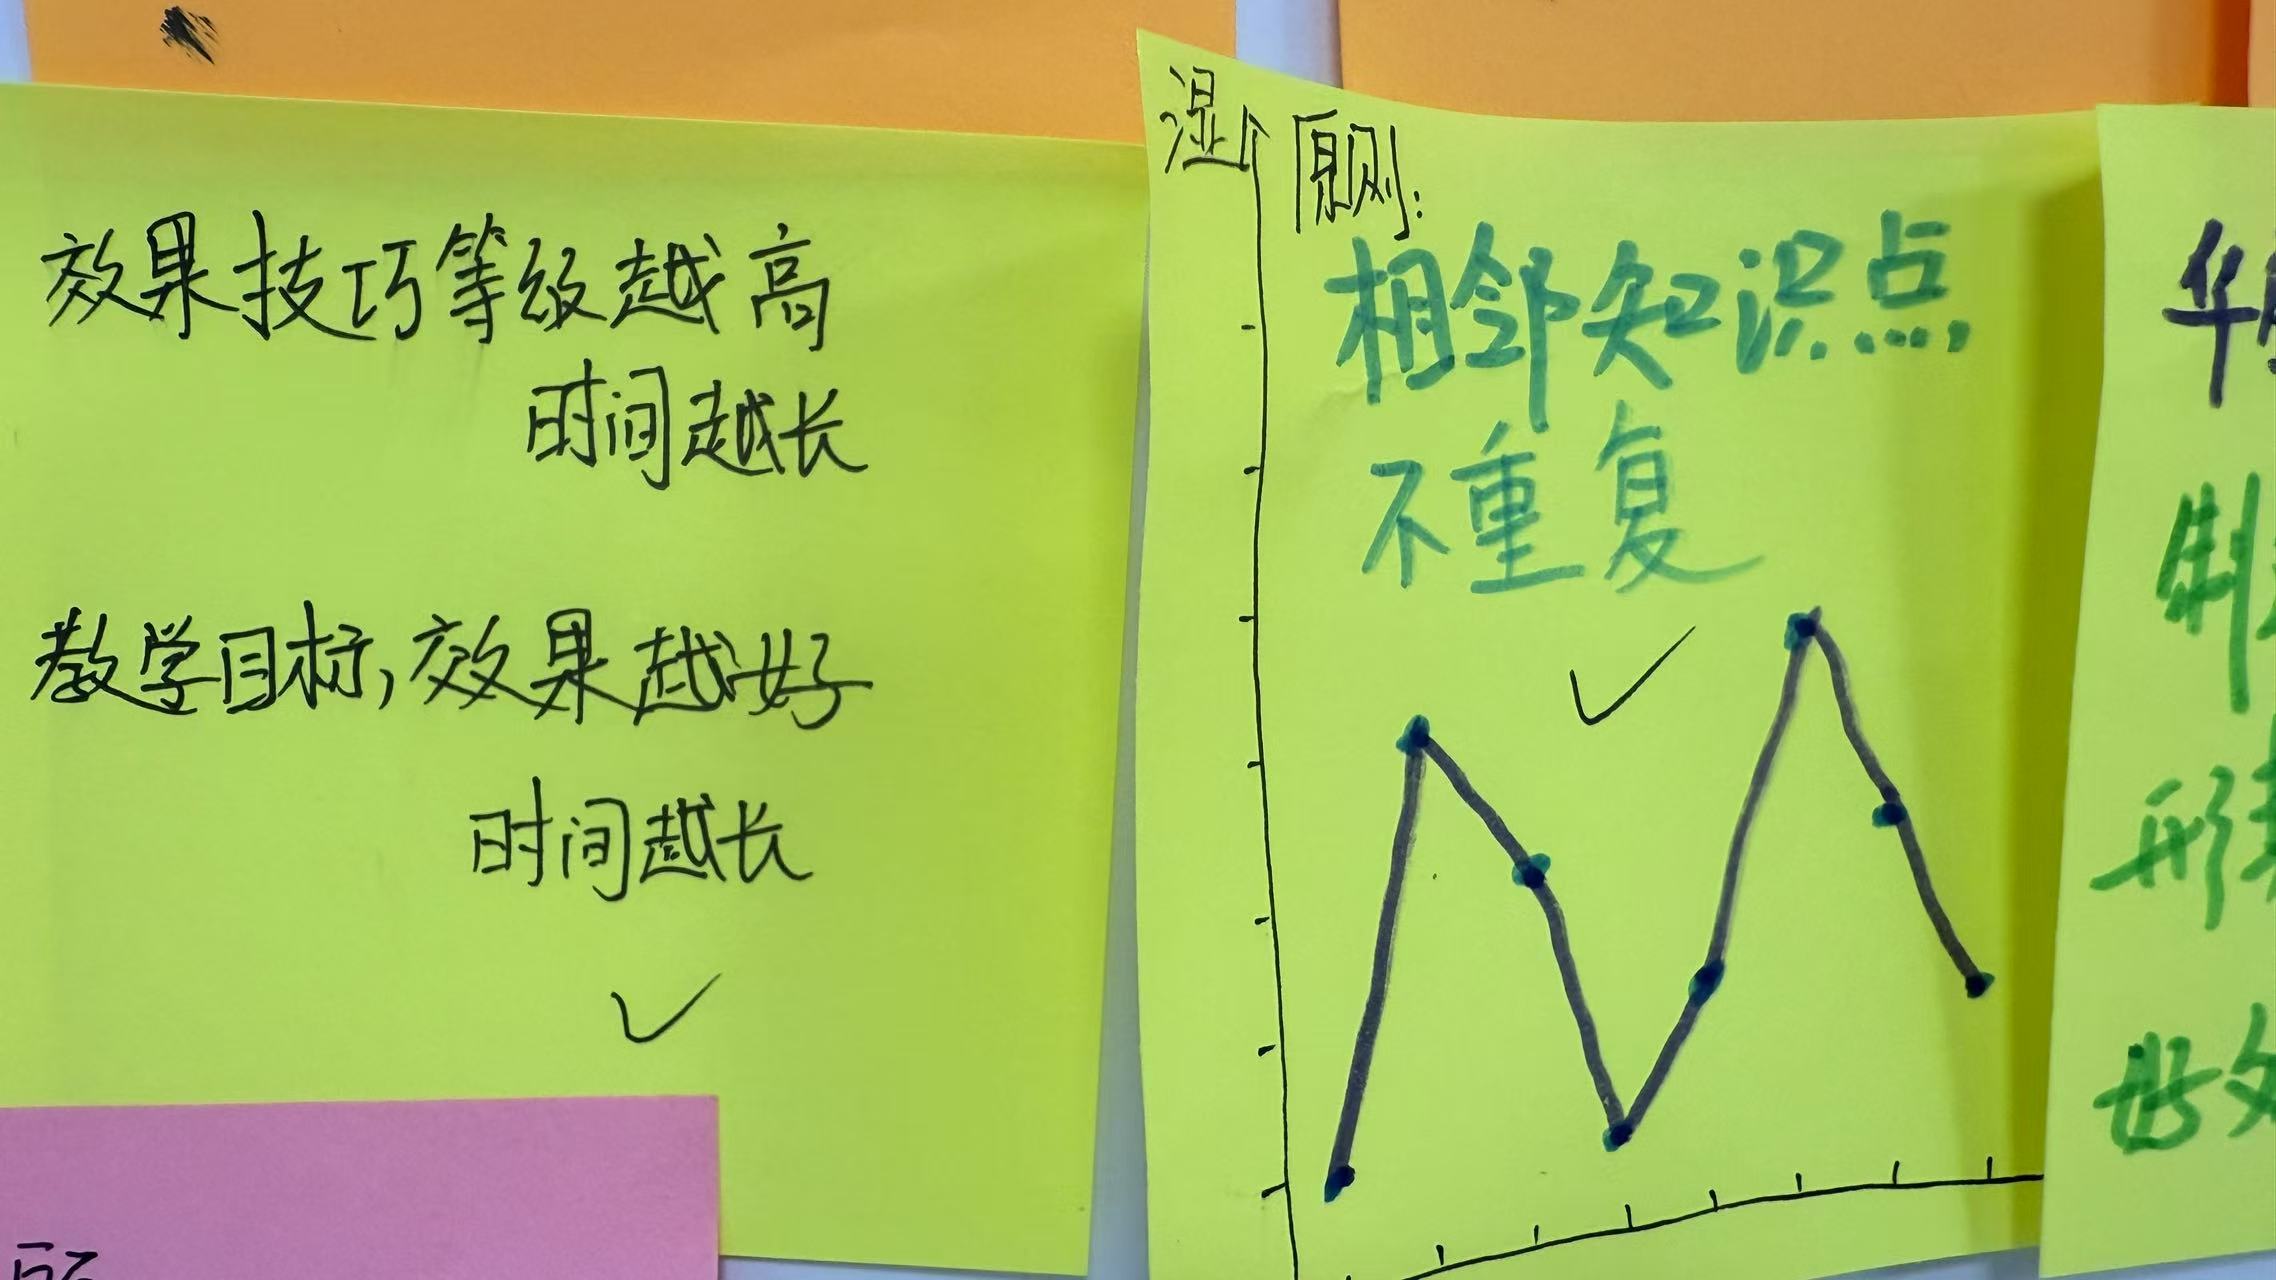 效果技巧等级越高
时间越长
教学目标,效果越好
时间越长
湿
原则:
相邻知识点
不重复
华
制
形
好文